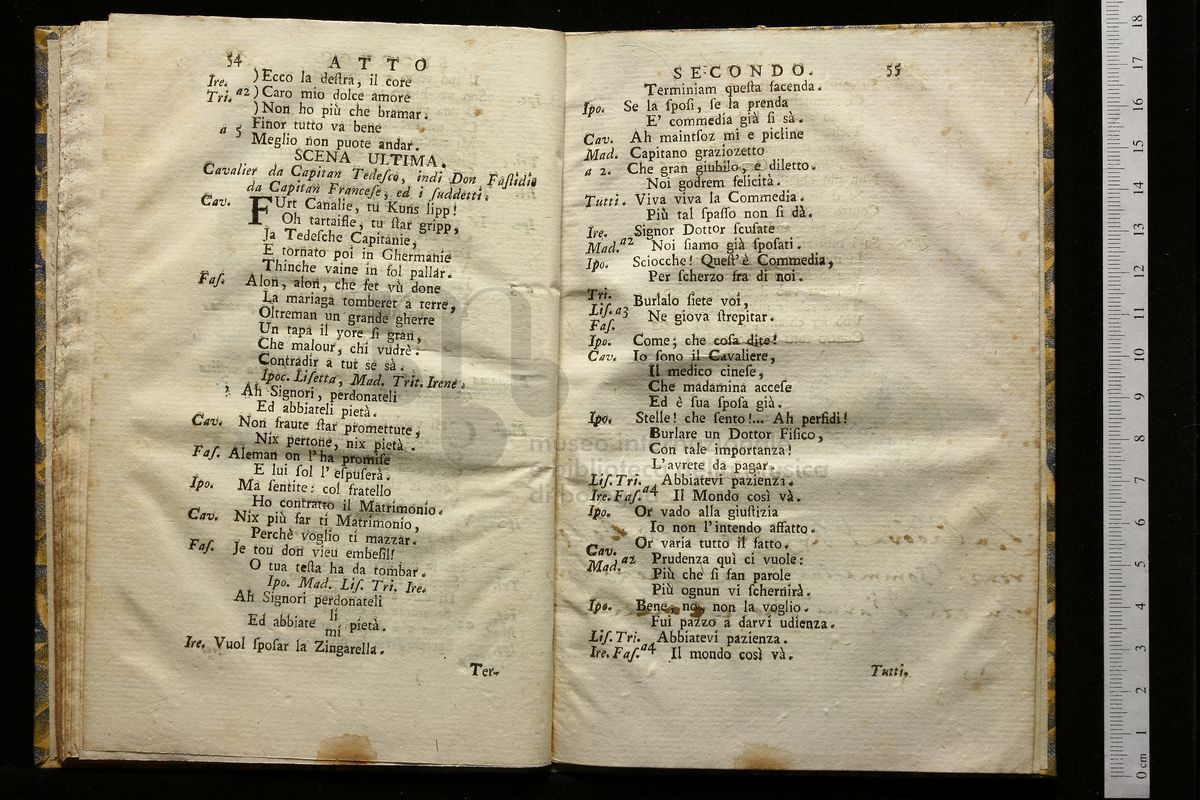 54 ATTO
Ire. ) Ecco la deſtra, il core
Tri. a2 ) Caro mio dolce amore
) Non ho più che bramar.
a 5 Finor tutto va bene
Meglio non puote andar.
SCENA ULTIMA.
Cavalier da Capitan Tedeſco, indi Don Faſtidio
da Capitan Franceſe, ed i ſuddetti.
Cav. FUrt Canalie, tu Kuns lipp!
Oh tartaifle, tu ſtar gripp,
Ja Tedeſche Capitanie,
E tornato poi in Ghermanie
Thinche vaine in ſol pallar.
Faſ. Alon, alon, che fet vù done
La mariaga tomberet a terre,
Oltreman un grande gherre
Un tapa il yore ſi gran,
Che malour, chi vudrè.
Contradir a tut se sà.
Ipoc. Liſetta, Mad. Trit. Irene.
Ah Signori, perdonateli
Ed abbiateli pietà.
Cav. Non fraute ſtar promettute,
Nix pertone, nix pietà.
Faſ. Aleman on l'ha promiſe
E lui ſol l'eſpuſerà.
Ipo. Ma ſentite: col fratello
Ho contratto il Matrimonio.
Cav. Nix più far ti Matrimonio,
Perchè voglio ti mazzar.
Faſ. Je tou don vieu embeſil!
O tua teſta ha da tombar.
Ipo. Mad. Liſ. Tri. Ire.
Ah Signori perdonateli
Ed abbiate li mi pietà.
Ire. Vuol ſpoſar la Zingarella.
Ter-
SECONDO. 55
Terminiam queſta facenda.
Ipo. Se la ſpoſi, ſe la prenda
E' commedia già ſi sà.
Cav. Ah maintſoz mi e picline
Mad. Capitano graziozetto
a 2. Che gran giubilo, e diletto.
Noi godrem felicità.
Tutti. Viva viva la Commedia.
Più tal ſpaſſo non ſi dà.
Ire. Signor Dottor ſcuſate
Mad. a2 Noi ſiamo già ſpoſati.
Ipo. Sciocche! Queſt'è Commedia,
Per ſcherzo fra di noi.
Tri.
Liſ. a3 Burlalo ſiete voi,
Faſ. Ne giova ſtrepitar.
Ipo. Come; che coſa dite!
Cav. Io ſono il Cavaliere,
Il medico cineſe,
Che madamina acceſe
Ed è ſua ſpoſa già.
Ipo. Stelle! che ſento!... Ah perfidi!
Burlare un Dottor Fiſico,
Con tale importanza!
L'avrete da pagar.
Liſ. Tri. Abbiatevi pazienza.
Ire. Faſ. a4 Il Mondo così và.
Ipo. Or vado alla giuſtizia
Io non l'intendo affatto.
Or varia tutto il fatto.
Cav.
Mad. a2 Prudenza quì ci vuole:
Più che ſi fan parole
Più ognun vi ſchernirà.
Ipo. Bene, no, non la voglio.
Fui pazzo a darvi udienza.
Liſ. Tri. Abbiatevi pazienza.
Ire. Faſ. a4 Il mondo così và.
Tutti.
museo internazionale
e biblioteca della musica
di bologna
0 cm 1 2 3 4 5 6 7 8 9 10 11 12 13 14 15 16 17 18